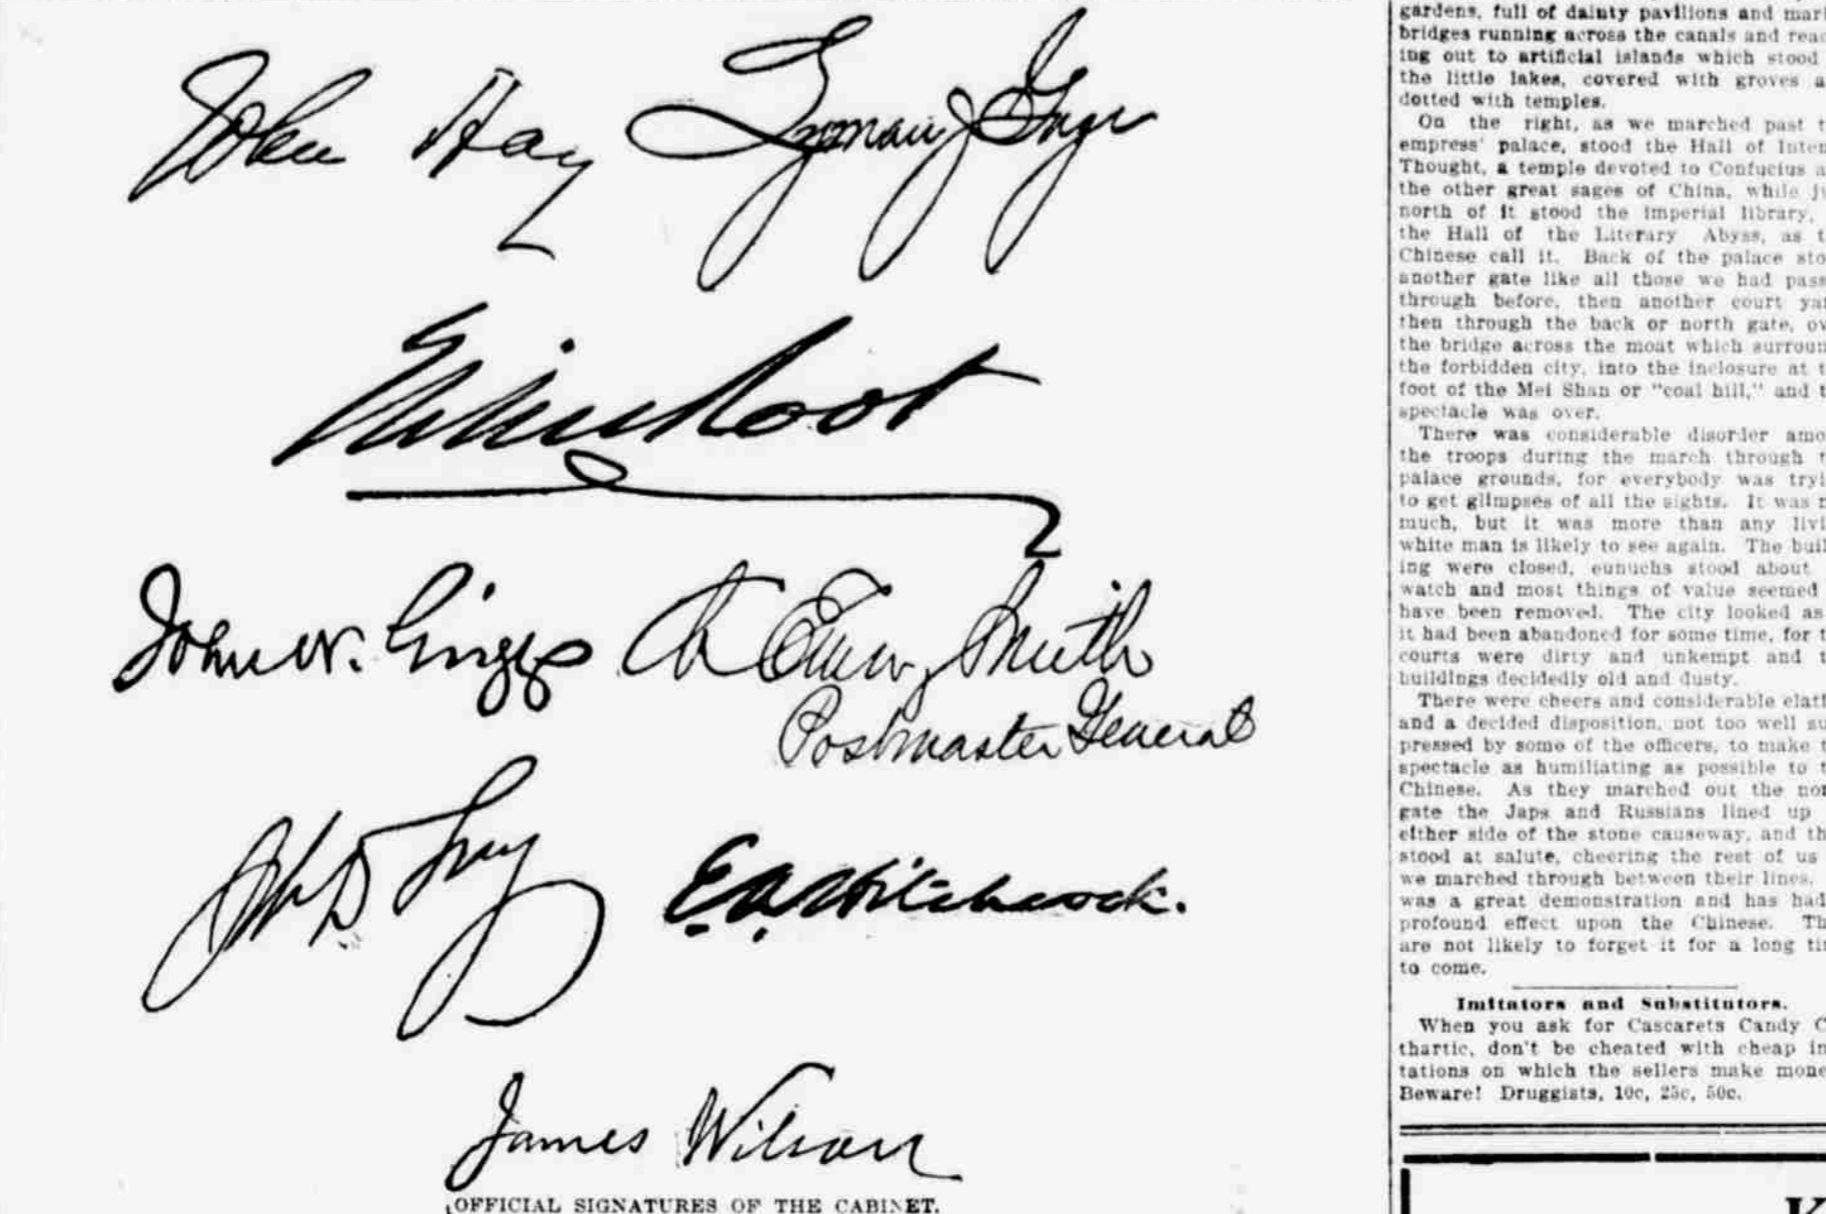 John Hay Lyman J Gage
Elihu Root
John W. Griggs Ch Emory Smith
Postmaster General
John D Long E. A. Hitchcock.
James Wilson
OFFICIAL SIGNATURES OF THE CABINET.
gardens, full of dainty pavilions and
bridges running across the canals and
ing out to artificial islands which stood
the little lakes, covered with groves
dotted with temples.
On the right, as we marched past
empress' palace, stood the Hall of
Thought, a temple devoted to Confucius
the other great sages of China, while
north of it stood the imperial library,
the Hall of the Literary Abyss, as
Chinese call it. Back of the palace
another gate like all those we had
through before, then another court
then through the back or north gate,
the bridge across the moat which
the forbidden city, into the inclosure at
foot of the Mei Shan or "coal hill," and
spectacle was over.
There was considerable disorder
the troops during the march through
palace grounds, for everybody was
to get glimpses of all the sights. It was
much, but it was more than any
white man is likely to see again. The
ing were closed, eunuchs stood about
watch and most things of value seemed
have been removed. The city looked as
it had been abandoned for some time, for
courts were dirty and unkempt and
buildings decidedly old and dusty.
There were cheers and considerable
and a decided disposition, not too well
pressed by some of the officers, to make
spectacle as humiliating as possible to
Chinese. As they marched out the
gate the Japs and Russians lined up
either side of the stone causeway, and
stood at salute, cheering the rest of us
we marched through between their lines.
was a great demonstration and has had
profound effect upon the Chinese.
are not likely to forget it for a long
to come.
Imitators and Substitutors.
When you ask for Cascarets Candy
thartic, don't be cheated with cheap
tations on which the sellers make
Beware! Druggists, 10c, 25c, 50c.
K